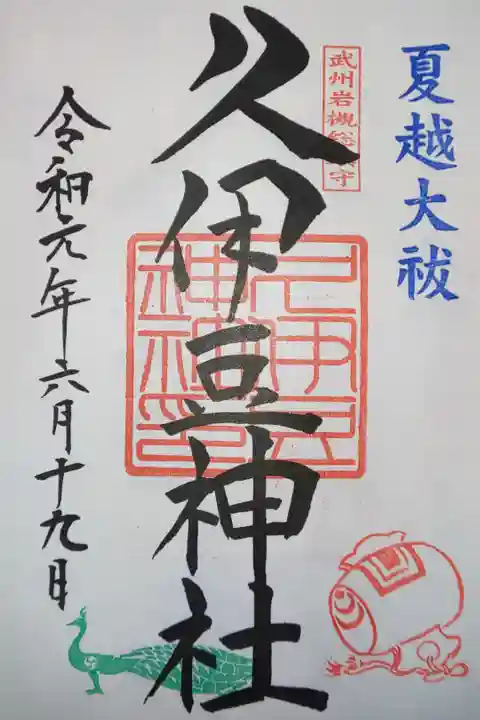 夏越大祓
武州岩槻総鎮守
久伊豆神社
令和元年六月十九日